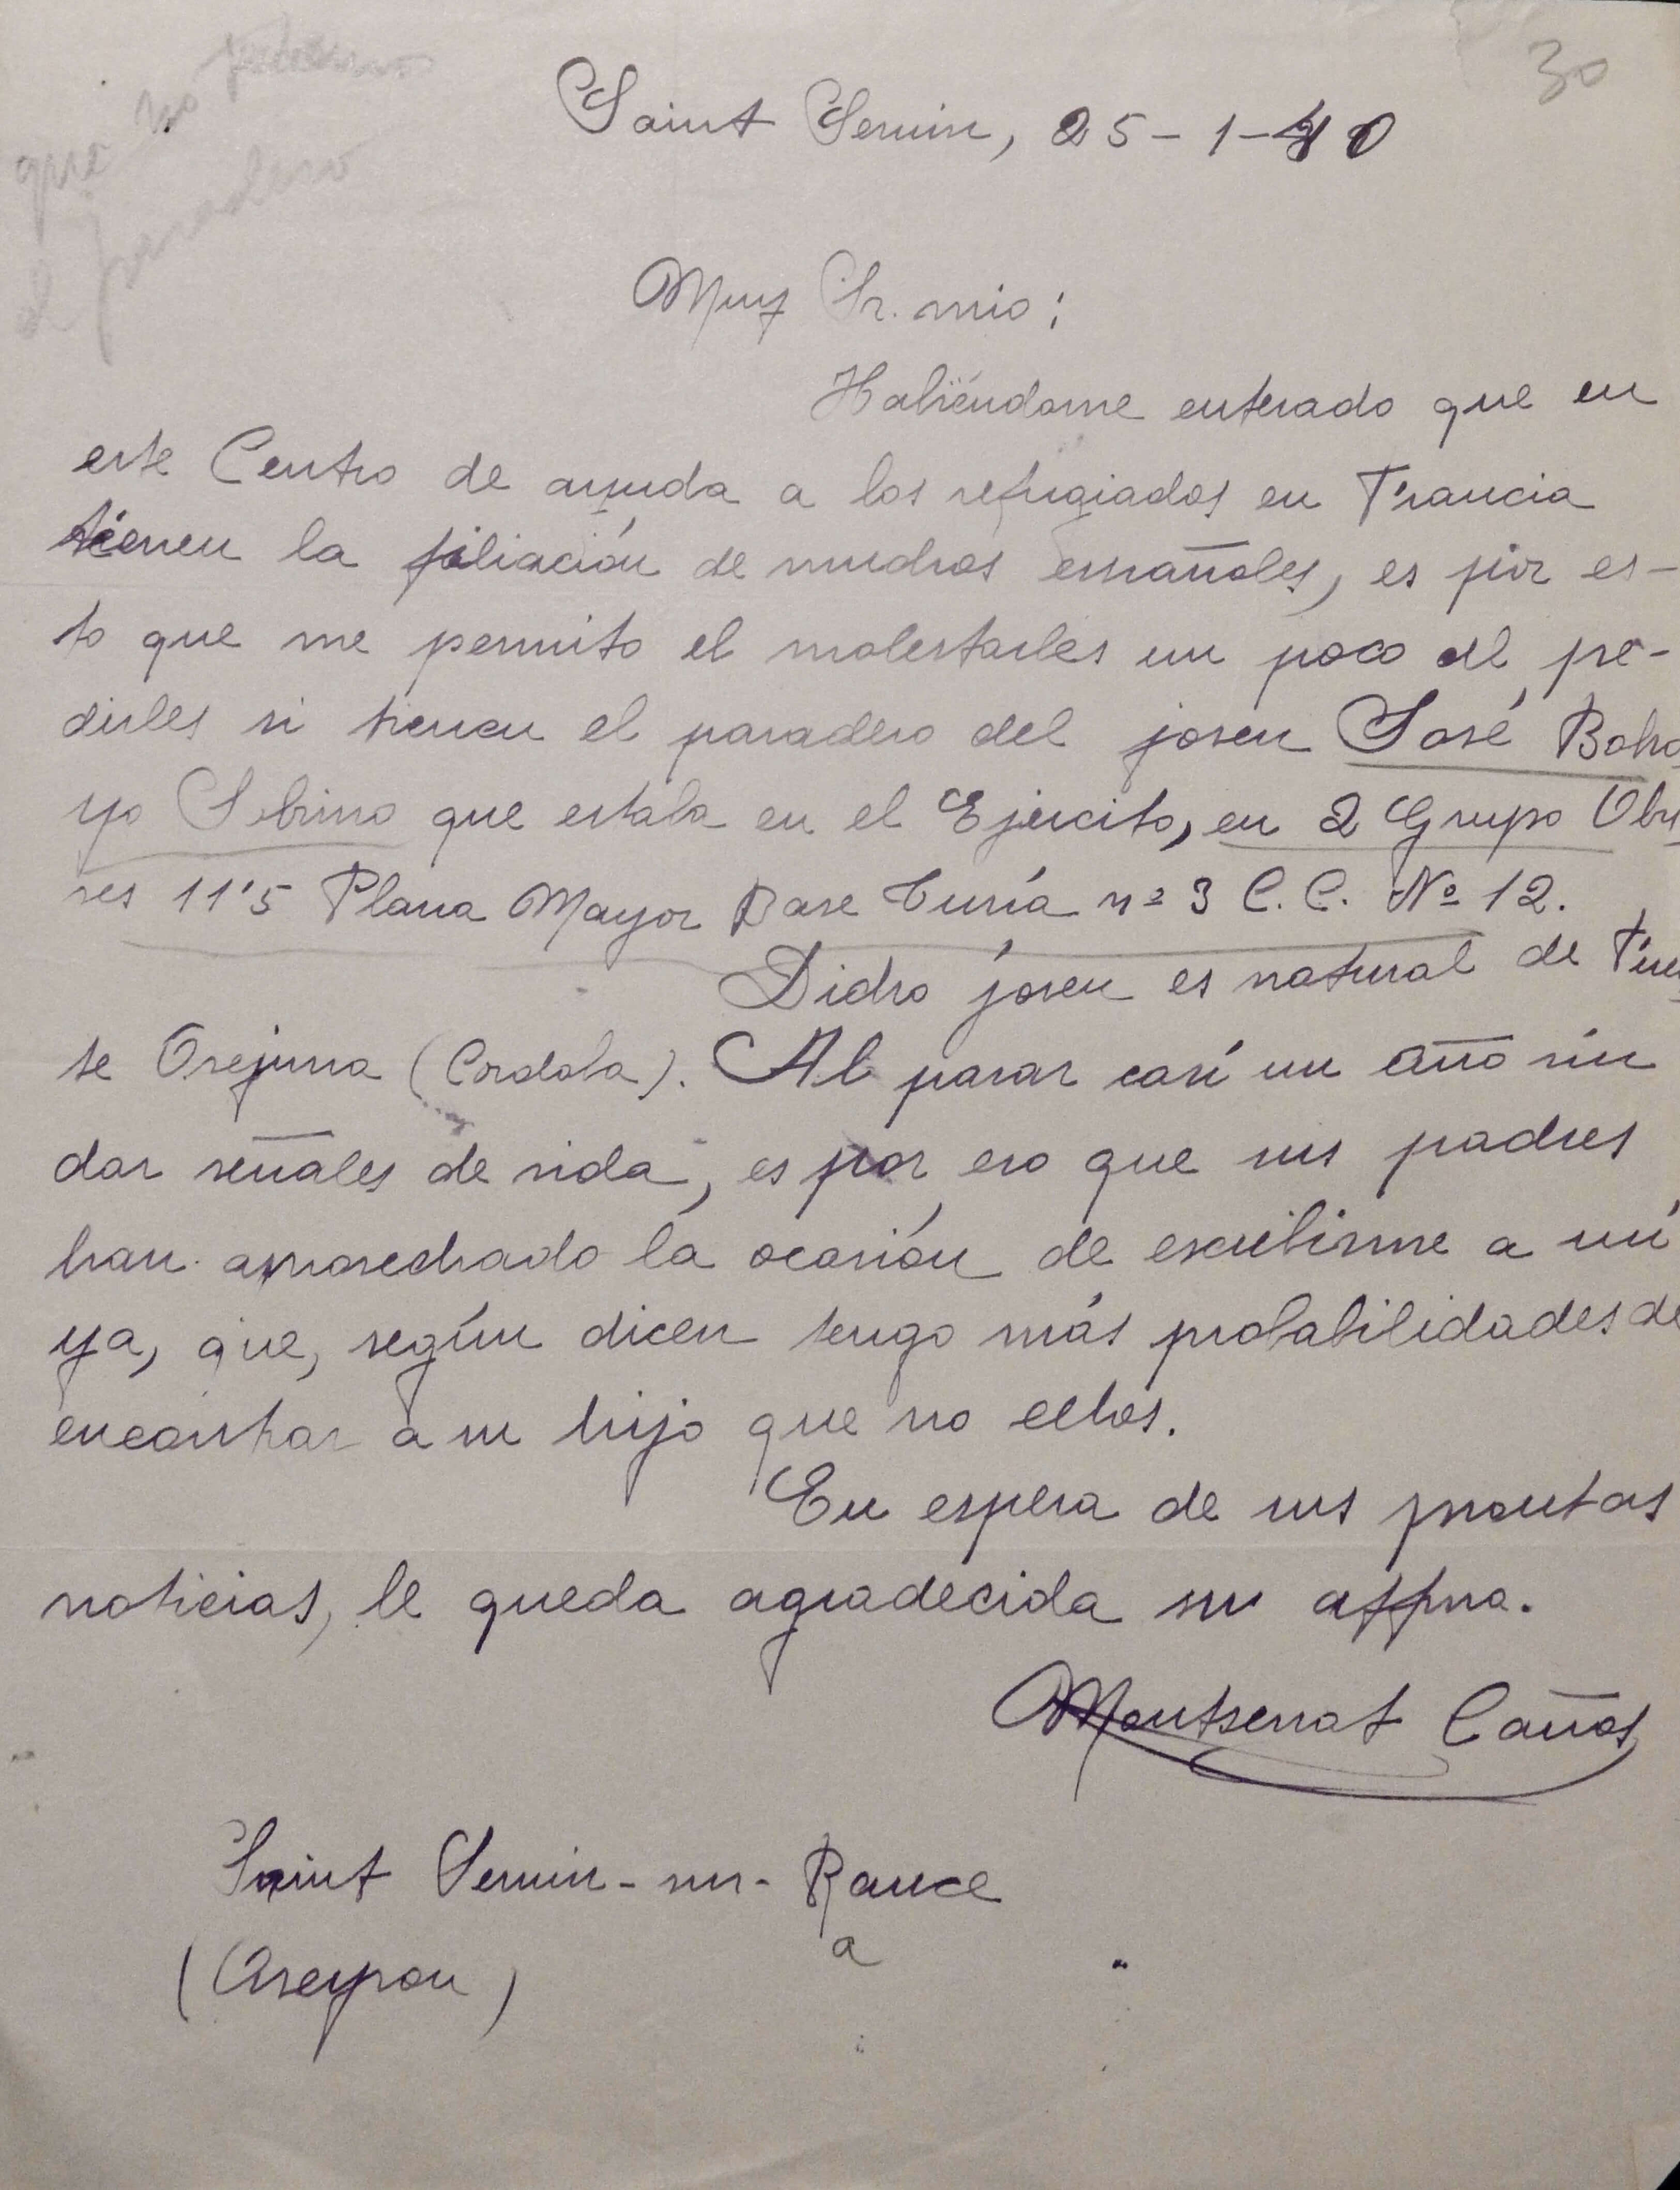 30
que no
el paradero
Saint Sernin, 25-1-40
Muy Sr. mio:
Habiéndome enterado que en
este Centro de ayuda a los refugiados en Francia
tienen la filiación de muchos españoles, es por es-
to que me permito el molestarles un poco al pe-
dirles si tienen el paradero del joven José Boho
yo Sebrino que estaba en el Ejército, en 2 Grupo Obu
ses 11'5 Plana Mayor Base Turia nº 3 C.C. Nº 12.
Dicho joven es natural de Fuen
te Obejuna (Cordoba). Al pasar casi un año sin
dar señales de vida, es por eso que sus padres
han aprovechado la ocasión de escribirme a mi
ya, que, según dicen tengo más probabilidades de
encontrar a su hijo que no ellos.
En espera de sus prontas
noticias, le queda agradecida su affma.
Montserrat Cañas
Saint Sernin-sur-Rance
a
(Aveyron)